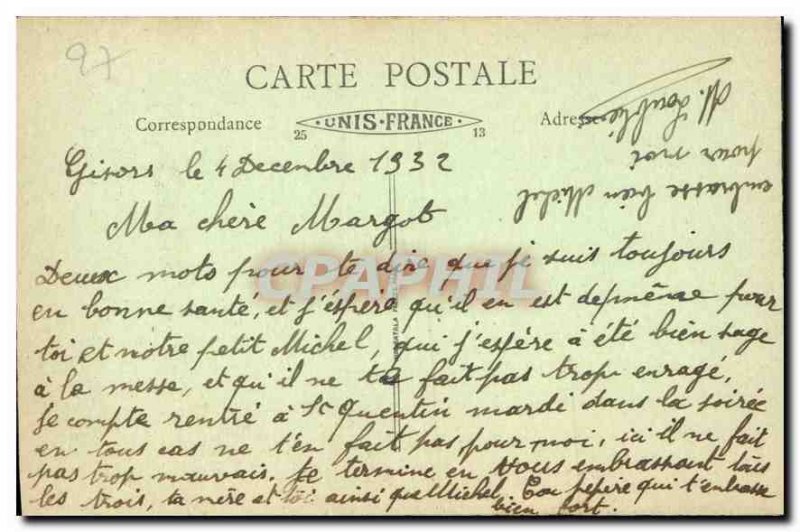 97
CARTE POSTALE
Correspondance
UNIS-FRANCE
25
13
Adresse
Gisors le 4 Decembre 1932
Ma chère Margot
Deux mots pour te dire que je suis toujours
en bonne santé, et j'éspere qu'il en est de même pour
toi et nôtre petit Michel, qui j'espére à été bien sage
à la messe, et qu'il ne ta fait pas trop enragé,
Je compte rentré à St Quentin mardi dans la soirée
en tous cas ne t'en fait pas pour moi, ici il ne fait
pas trop mauvais. Je termine en vous embrassant tous
les trois, ta mère et toi ainsi que Michel. Ton qui t'embrasse
bien fort.
embrasse bien Michel
pour moi
CPAPHIL